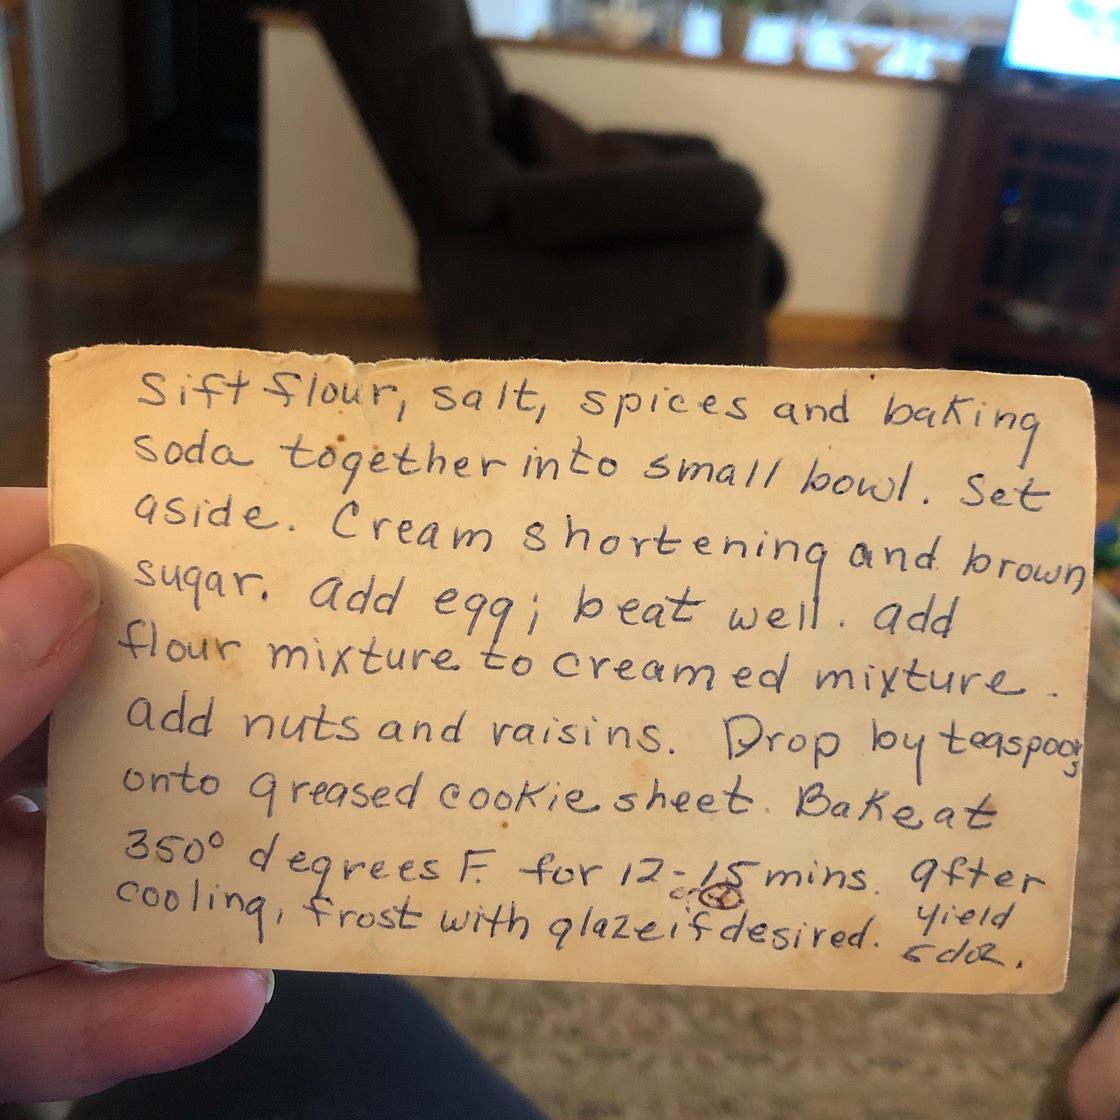 Sift flour, salt, spices and baking
soda together into small bowl. Set
aside. Cream shortening and brown
sugar. add egg; beat well. add
flour mixture to creamed mixture.
add nuts and raisins. Drop by teaspoons
onto greased cookie sheet. Bake at
350° degrees F. for 12-15 mins. after
cooling, frost with glaze if desired.
yield
5 doz.